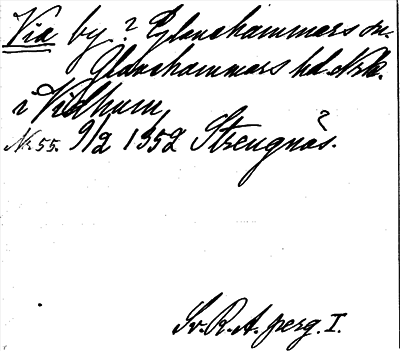 Via by? Glanshammars sn.
Glanshammars hd. Nrk.
i Vidhum,
Nr. 55. 9/2 1352 Strengnäs.
?
Sv. R. A. perg. I.